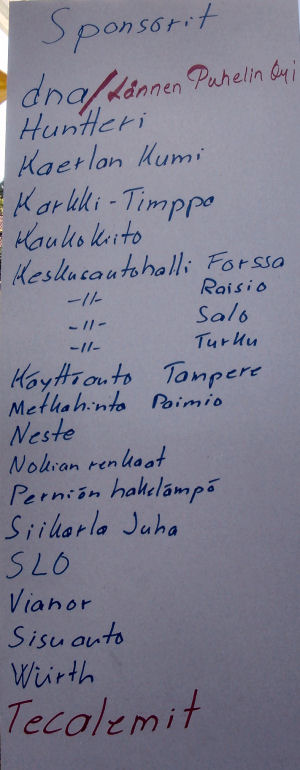 Sponsorit
dna/Lännen Puhelin Oyj
Huntteri
Kaerlan Kumi
Karkki-Timppa
Kaukokiito
Keskusautohalli Forssa
-11- Raisio
-11- Salo
-11- Turku
Käyttöauto Tampere
Metkahinta Paimio
Neste
Nokian renkaat
Perniön hakelämpö
Siikarla Juha
SLO
Vianor
Sisuauto
Würth
Tecalemit